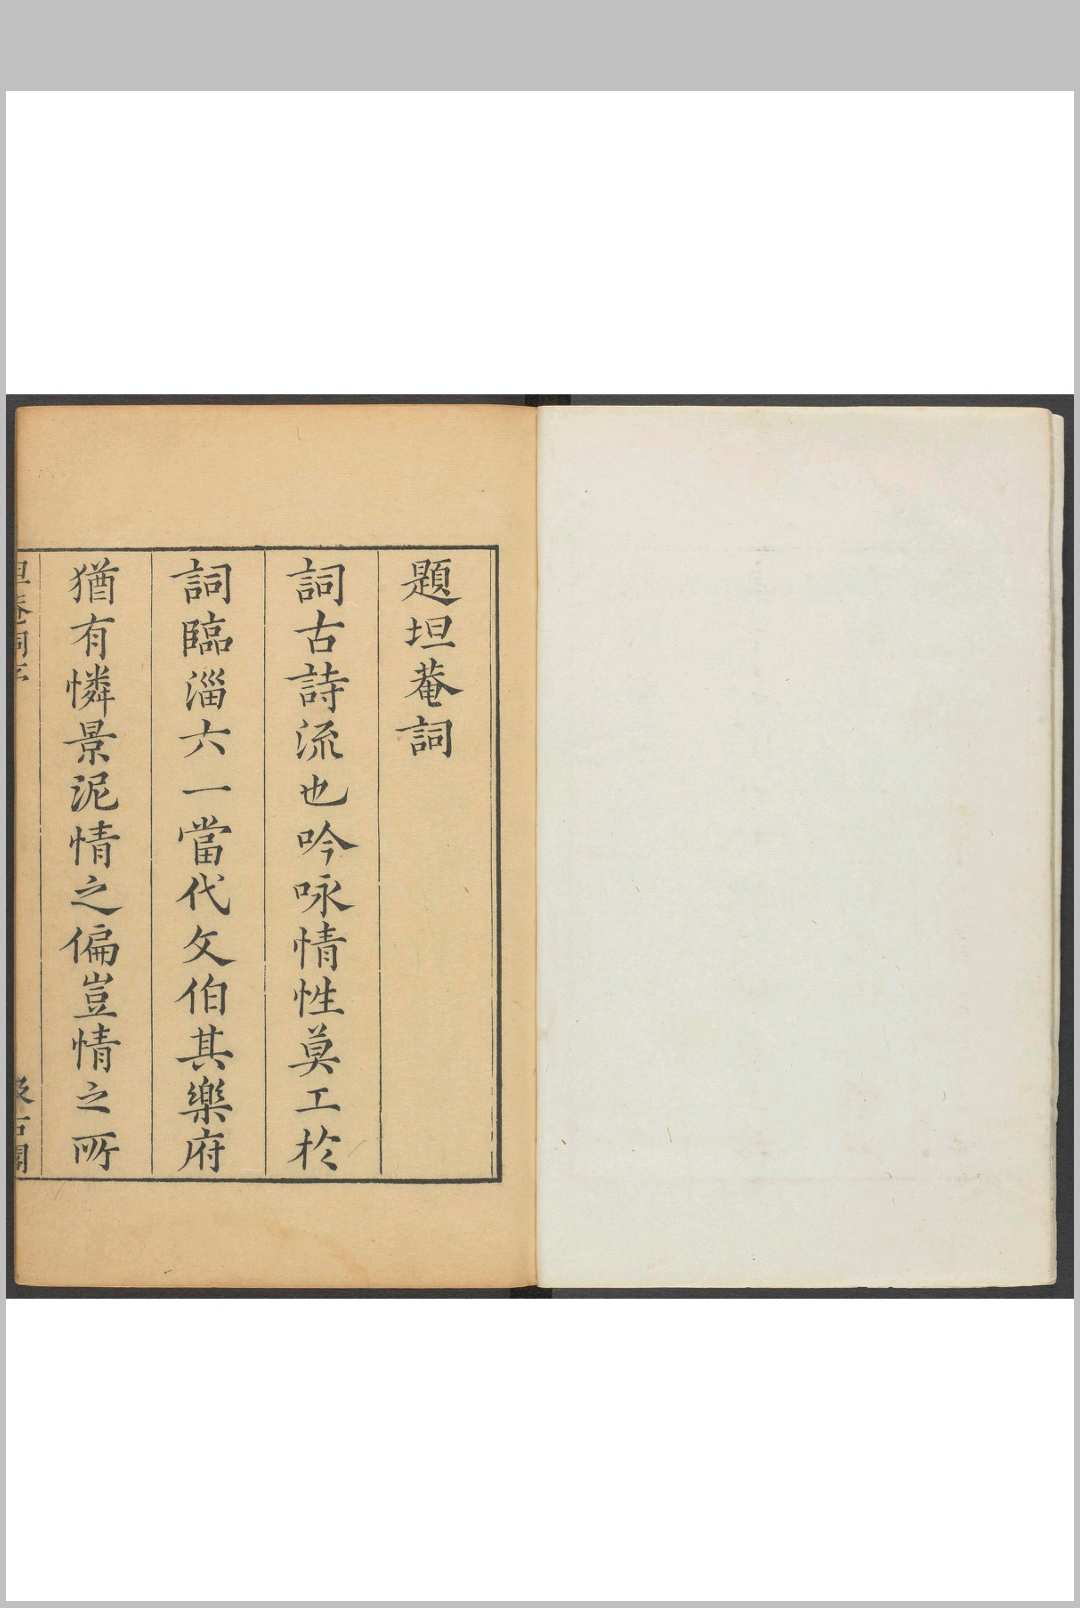 題坦菴詞
詞古詩流也吟咏情性莫工於
詞臨淄六一當代文伯其樂府
猶有憐景泥情之偏豈情之所
坦菴詞序
汲古閣